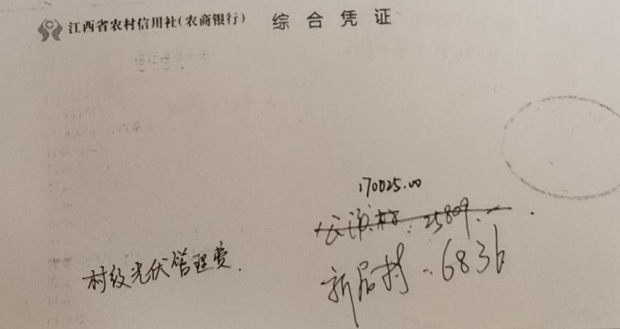 江西省农村信用社(农商银行) 综合凭证
170025.00
25809.
村级光伏管理费.
新居村. 6836